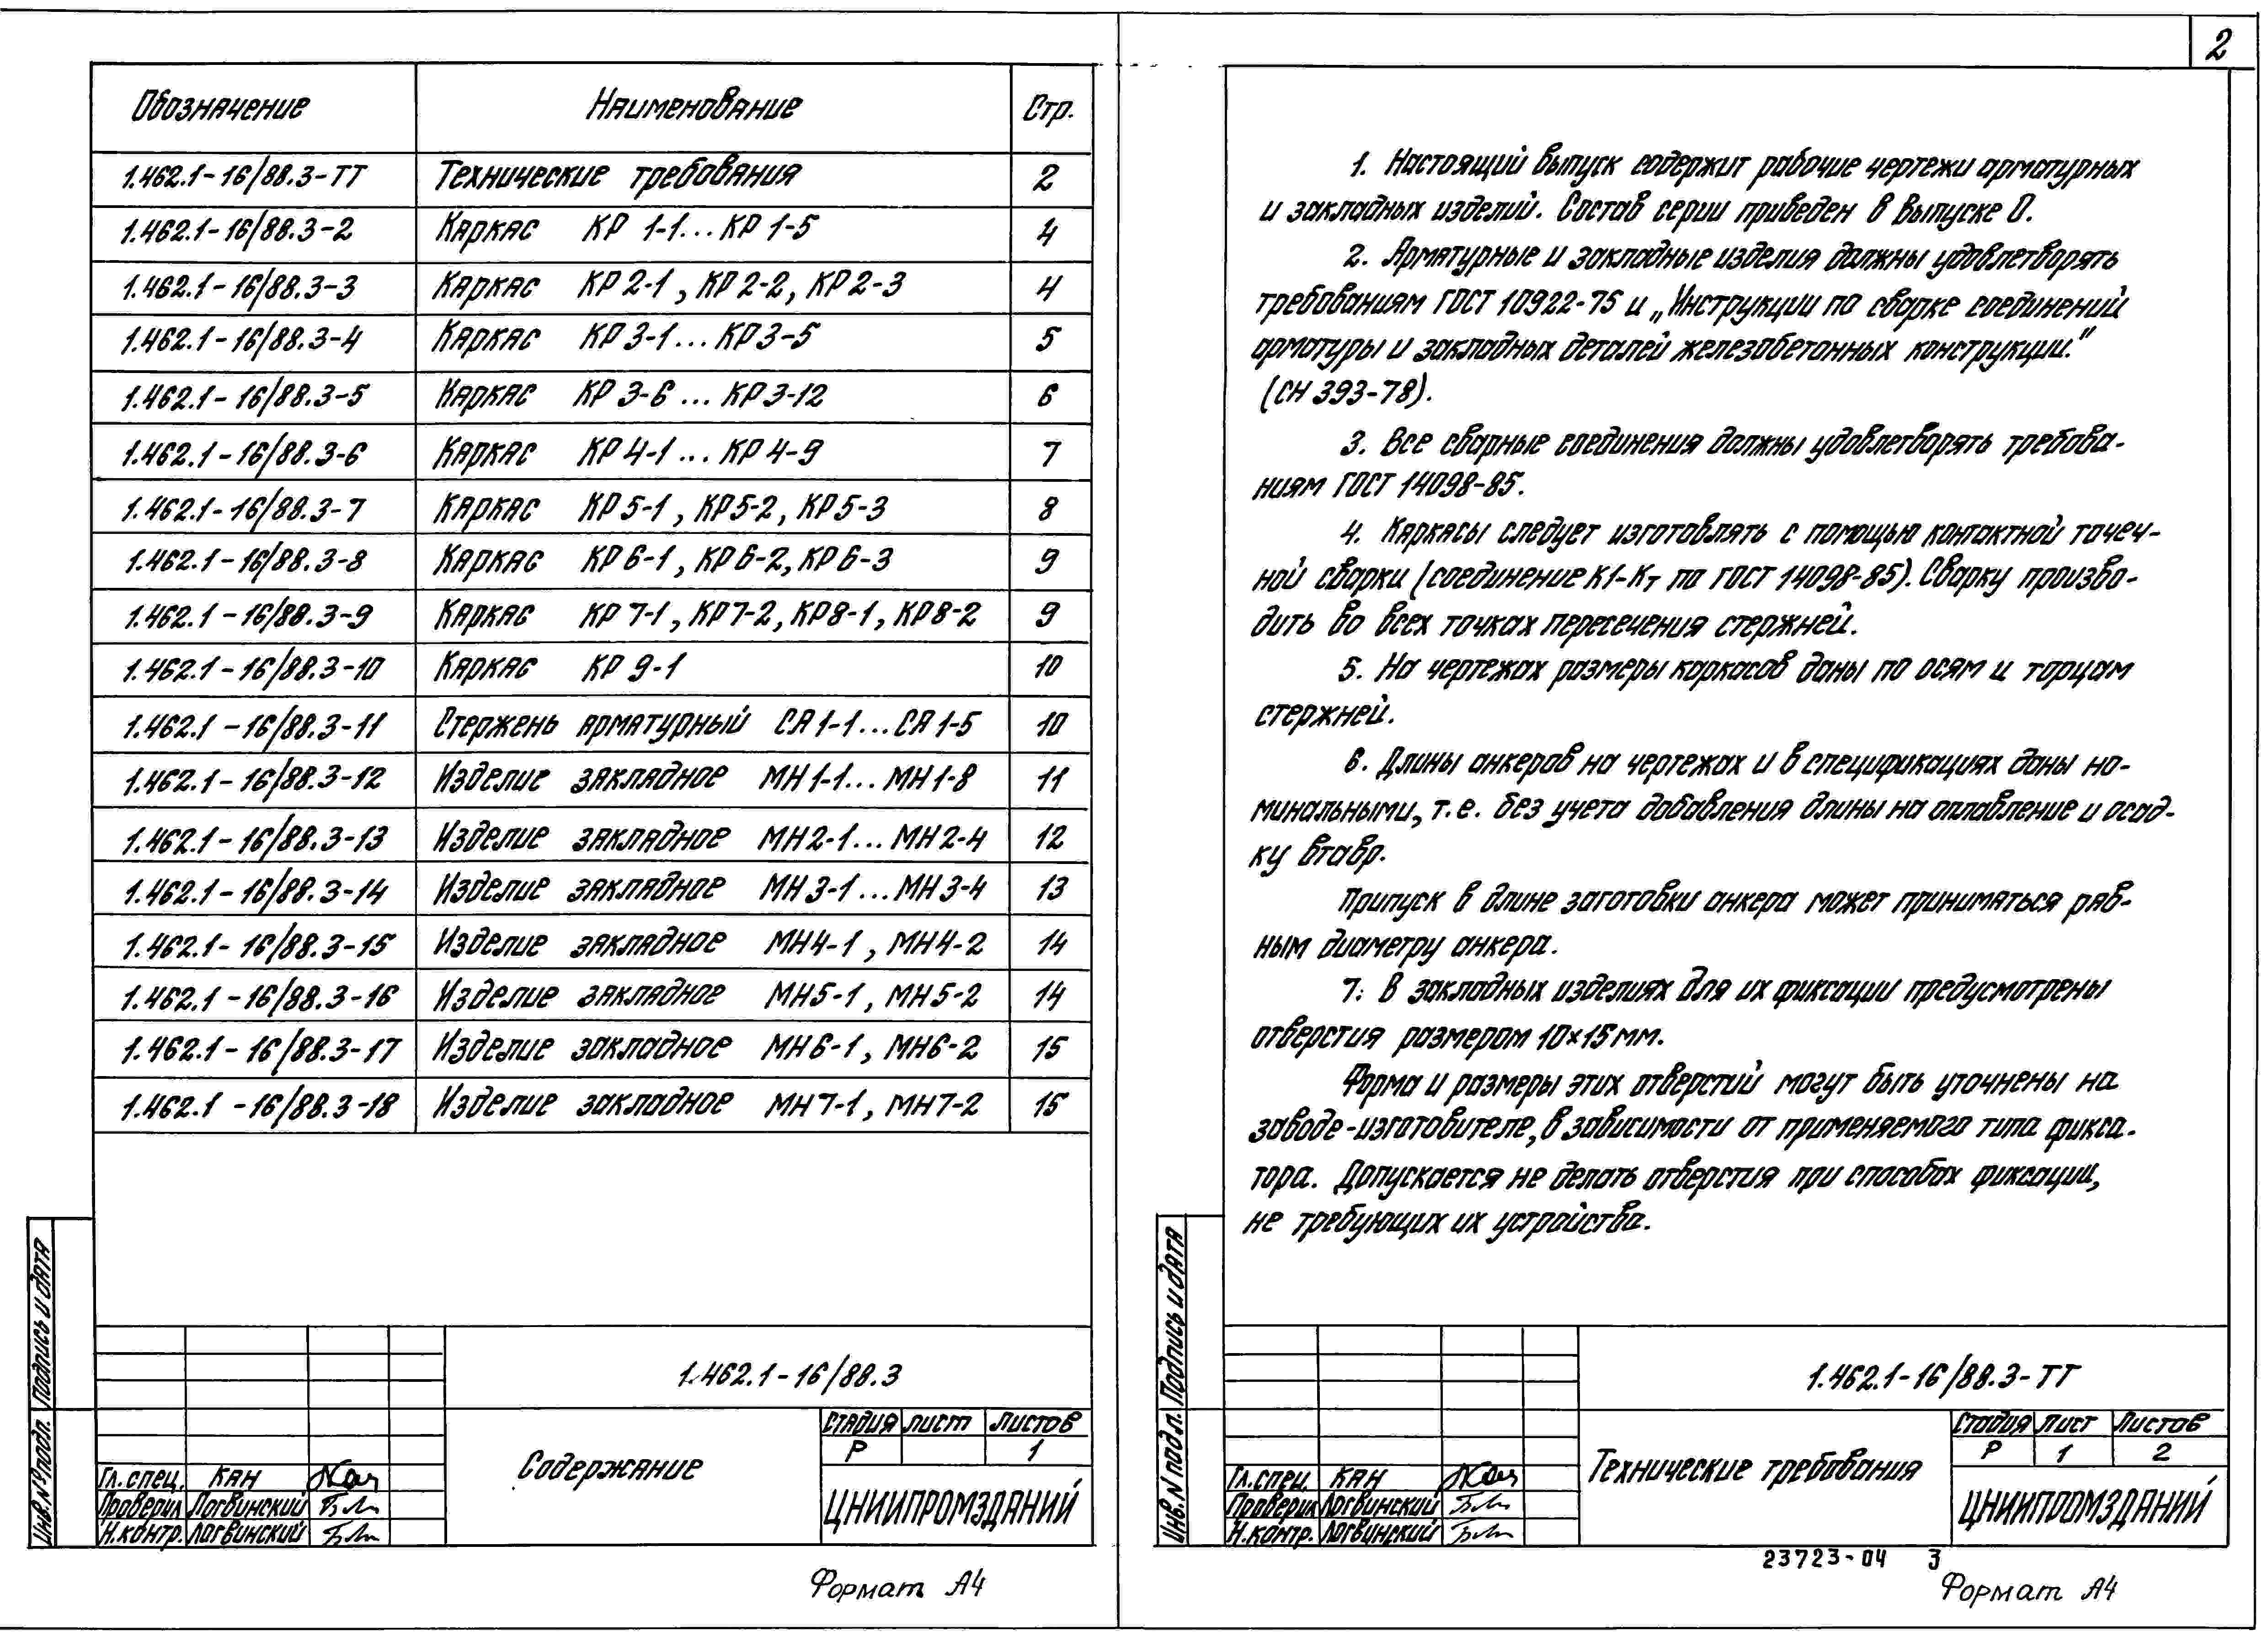 Обозначение Наименование Стр.
1.462.1-16/88.3-ТТ Технические требования 2
1.462.1-16/88.3-2 Каркас КР 1-1...КР 1-5 4
1.462.1-16/88.3-3 Каркас КР 2-1, КР 2-2, КР 2-3 4
1.462.1-16/88.3-4 Каркас КР 3-1...КР 3-5 5
1.462.1-16/88.3-5 Каркас КР 3-6...КР 3-12 6
1.462.1-16/88.3-6 Каркас КР 4-1...КР 4-9 7
1.462.1-16/88.3-7 Каркас КР 5-1, КР 5-2, КР 5-3 8
1.462.1-16/88.3-8 Каркас КР 6-1, КР 6-2, КР 6-3 9
1.462.1-16/88.3-9 Каркас КР 7-1, КР 7-2, КР 8-1, КР 8-2 9
1.462.1-16/88.3-10 Каркас КР 9-1 10
1.462.1-16/88.3-11 Стержень арматурный СА 1-1...СА 1-5 10
1.462.1-16/88.3-12 Изделие закладное МН 1-1...МН 1-8 11
1.462.1-16/88.3-13 Изделие закладное МН 2-1...МН 2-4 12
1.462.1-16/88.3-14 Изделие закладное МН 3-1...МН 3-4 13
1.462.1-16/88.3-15 Изделие закладное МН 4-1, МН 4-2 14
1.462.1-16/88.3-16 Изделие закладное МН 5-1, МН 5-2 14
1.462.1-16/88.3-17 Изделие закладное МН 6-1, МН 6-2 15
1.462.1-16/88.3-18 Изделие закладное МН 7-1, МН 7-2 15
Инв.№подл. Подпись и дата
1.462.1-16/88.3
Содержание
Стадия Лист Листов
Р 1
Гл.спец. Кан
Проверил Логвинский
Н.контр. Логвинский
ЦНИИПРОМЗДАНИЙ
Формат А4
2
1. Настоящий выпуск содержит рабочие чертежи арматурных
и закладных изделий. Состав серии приведен в выпуске 0.
2. Арматурные и закладные изделия должны удовлетворять
требованиям ГОСТ 10922-75 и „Инструкции по сварке соединений
арматуры и закладных деталей железобетонных конструкции."
(СН 393-78).
3. Все сварные соединения должны удовлетворять требова-
ниям ГОСТ 14098-85.
4. Каркасы следует изготовлять с помощью контактной точеч-
ной сварки (соединение К1-Кт по ГОСТ 14098-85). Сварку произво-
дить во всех точках пересечения стержней.
5. На чертежах размеры каркасов даны по осям и торцам
стержней.
6. Длины анкеров на чертежах и в спецификациях даны но-
минальными, т.е. без учета добавления длины на оплавление и осад-
ку втавр.
Припуск в длине заготовки анкера может приниматься рав-
ным диаметру анкера.
7. В закладных изделиях для их фиксации предусмотрены
отверстия размером 10×15мм.
Форма и размеры этих отверстий могут быть уточнены на
заводе-изготовителе, в зависимости от применяемого типа фикса-
тора. Допускается не делать отверстия при способах фиксации,
не требующих их устройства.
Инв.N подл. Подпись и дата
1.462.1-16/88.3-ТТ
Технические требования
Стадия Лист Листов
Р 1 2
Гл.спец. Кан
Проверил Логвинский
Н.контр. Логвинский
ЦНИИПРОМЗДАНИЙ
23723-04 3
Формат А4